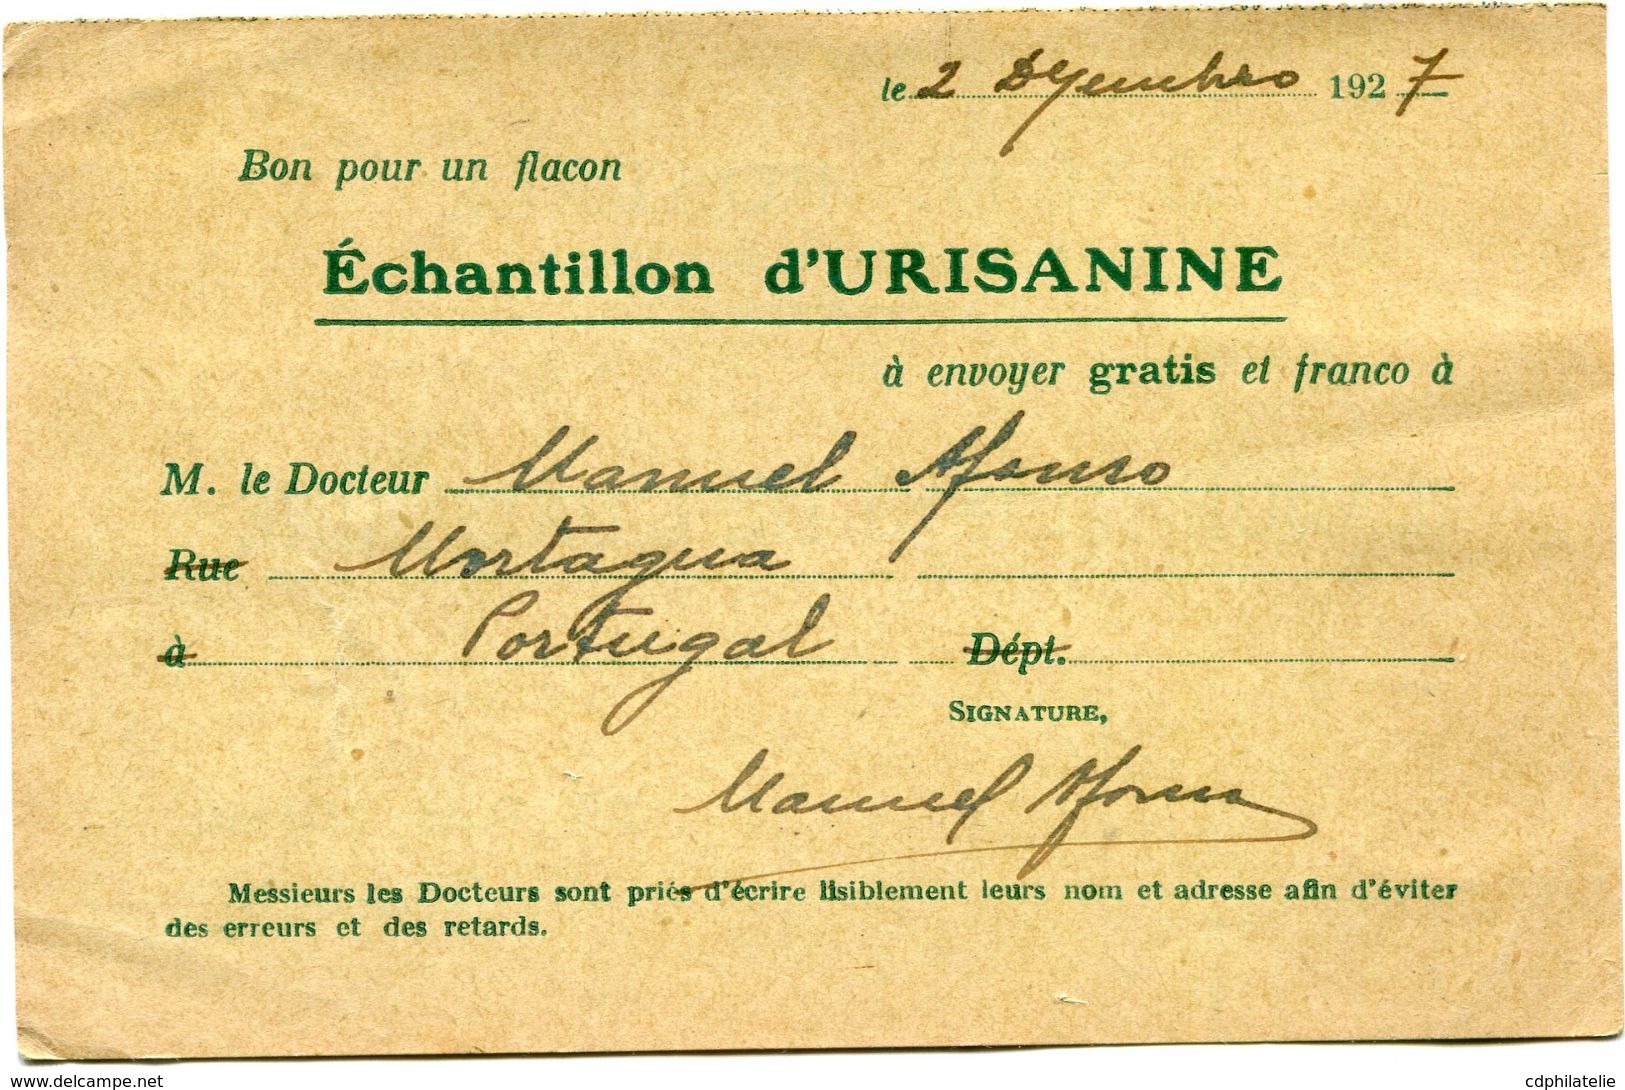 le 2 Dezembro 1927
Bon pour un flacon
Échantillon d'URISANINE
à envoyer gratis et franco à
M. le Docteur Manuel Afonso
Rue Mortagua
à Portugal Dépt.
SIGNATURE,
Manuel Afonso
Messieurs les Docteurs sont priés d'écrire lisiblement leurs nom et adresse afin d'éviter
des erreurs et des retards.
www.delcampe.net
cdphilatelie